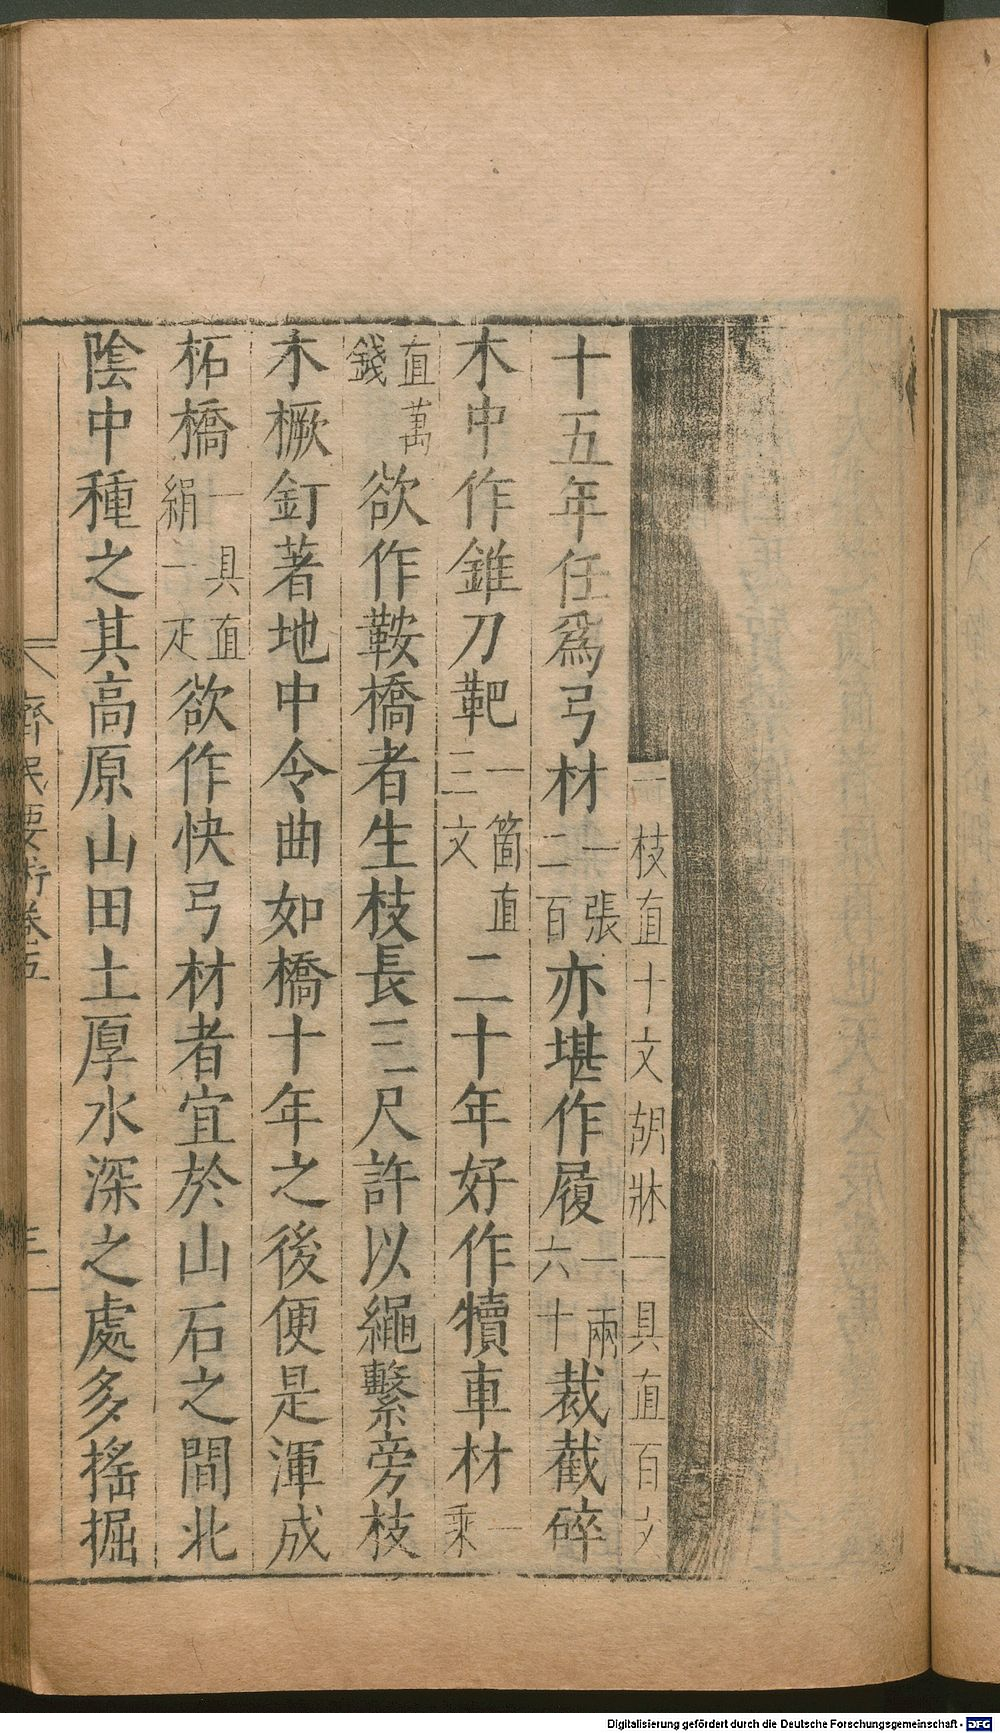 一枝直十文胡牀一具直百文
十五年任爲弓材一張二百亦堪作履一兩六十裁截碎
木中作錐刀靶一箇直三文二十年好作犢車材一乘
直萬錢欲作鞍橋者生枝長三尺許以繩繫旁枝
木橛釘著地中令曲如橋十年之後便是渾成
柘橋一具直絹一疋欲作快弓材者宜於山石之間北
陰中種之其高原山田土厚水深之處多搖掘
齊民要術卷五
Digitalisierung gefördert durch die Deutsche Forschungsgemeinschaft - DFG